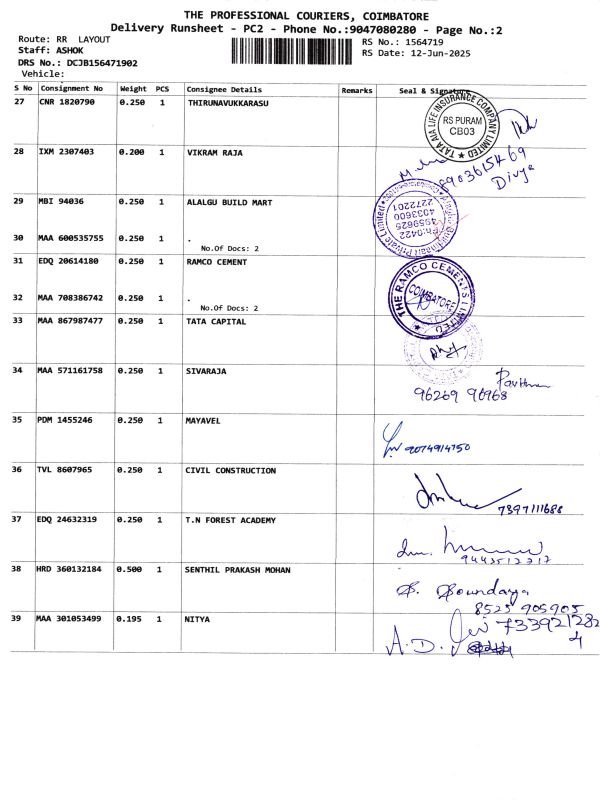 THE PROFESSIONAL COURIERS, COIMBATORE
Delivery Runsheet - PC2 - Phone No.:9047080280 - Page No.:2
Route: RR LAYOUT
Staff: ASHOK
DRS No.: DCJB156471902
Vehicle:
RS No.: 1564719
RS Date: 12-Jun-2025
S No Consignment No Weight PCS Consignee Details Remarks Seal & Signature
27 CNR 1820790 0.250 1 THIRUNAVUKKARASU
TATA AIA LIFE INSURANCE COMPANY LIMITED
RS PURAM
CB03
28 IXM 2307403 0.200 1 VIKRAM RAJA
8903615469
Divya
29 MBI 94036 0.250 1 ALALGU BUILD MART
Private Limited
Ph:0422
3959625
4033600
2272201
30 MAA 600535755 0.250 1 .
No.Of Docs: 2
31 EDQ 20614180 0.250 1 RAMCO CEMENT
THE RAMCO CEMENTS LIMITED
COIMBATORE
32 MAA 708386742 0.250 1 .
No.Of Docs: 2
33 MAA 867987477 0.250 1 TATA CAPITAL
34 MAA 571161758 0.250 1 SIVARAJA
96269 96968
35 PDM 1455246 0.250 1 MAYAVEL
9074914750
36 TVL 8607965 0.250 1 CIVIL CONSTRUCTION
7397111688
37 EDQ 24632319 0.250 1 T.N FOREST ACADEMY
9443512217
38 HRD 360132184 0.500 1 SENTHIL PRAKASH MOHAN
S. Soundarya
8525 905905
39 MAA 301053499 0.195 1 NITYA
A.D.
7339212824